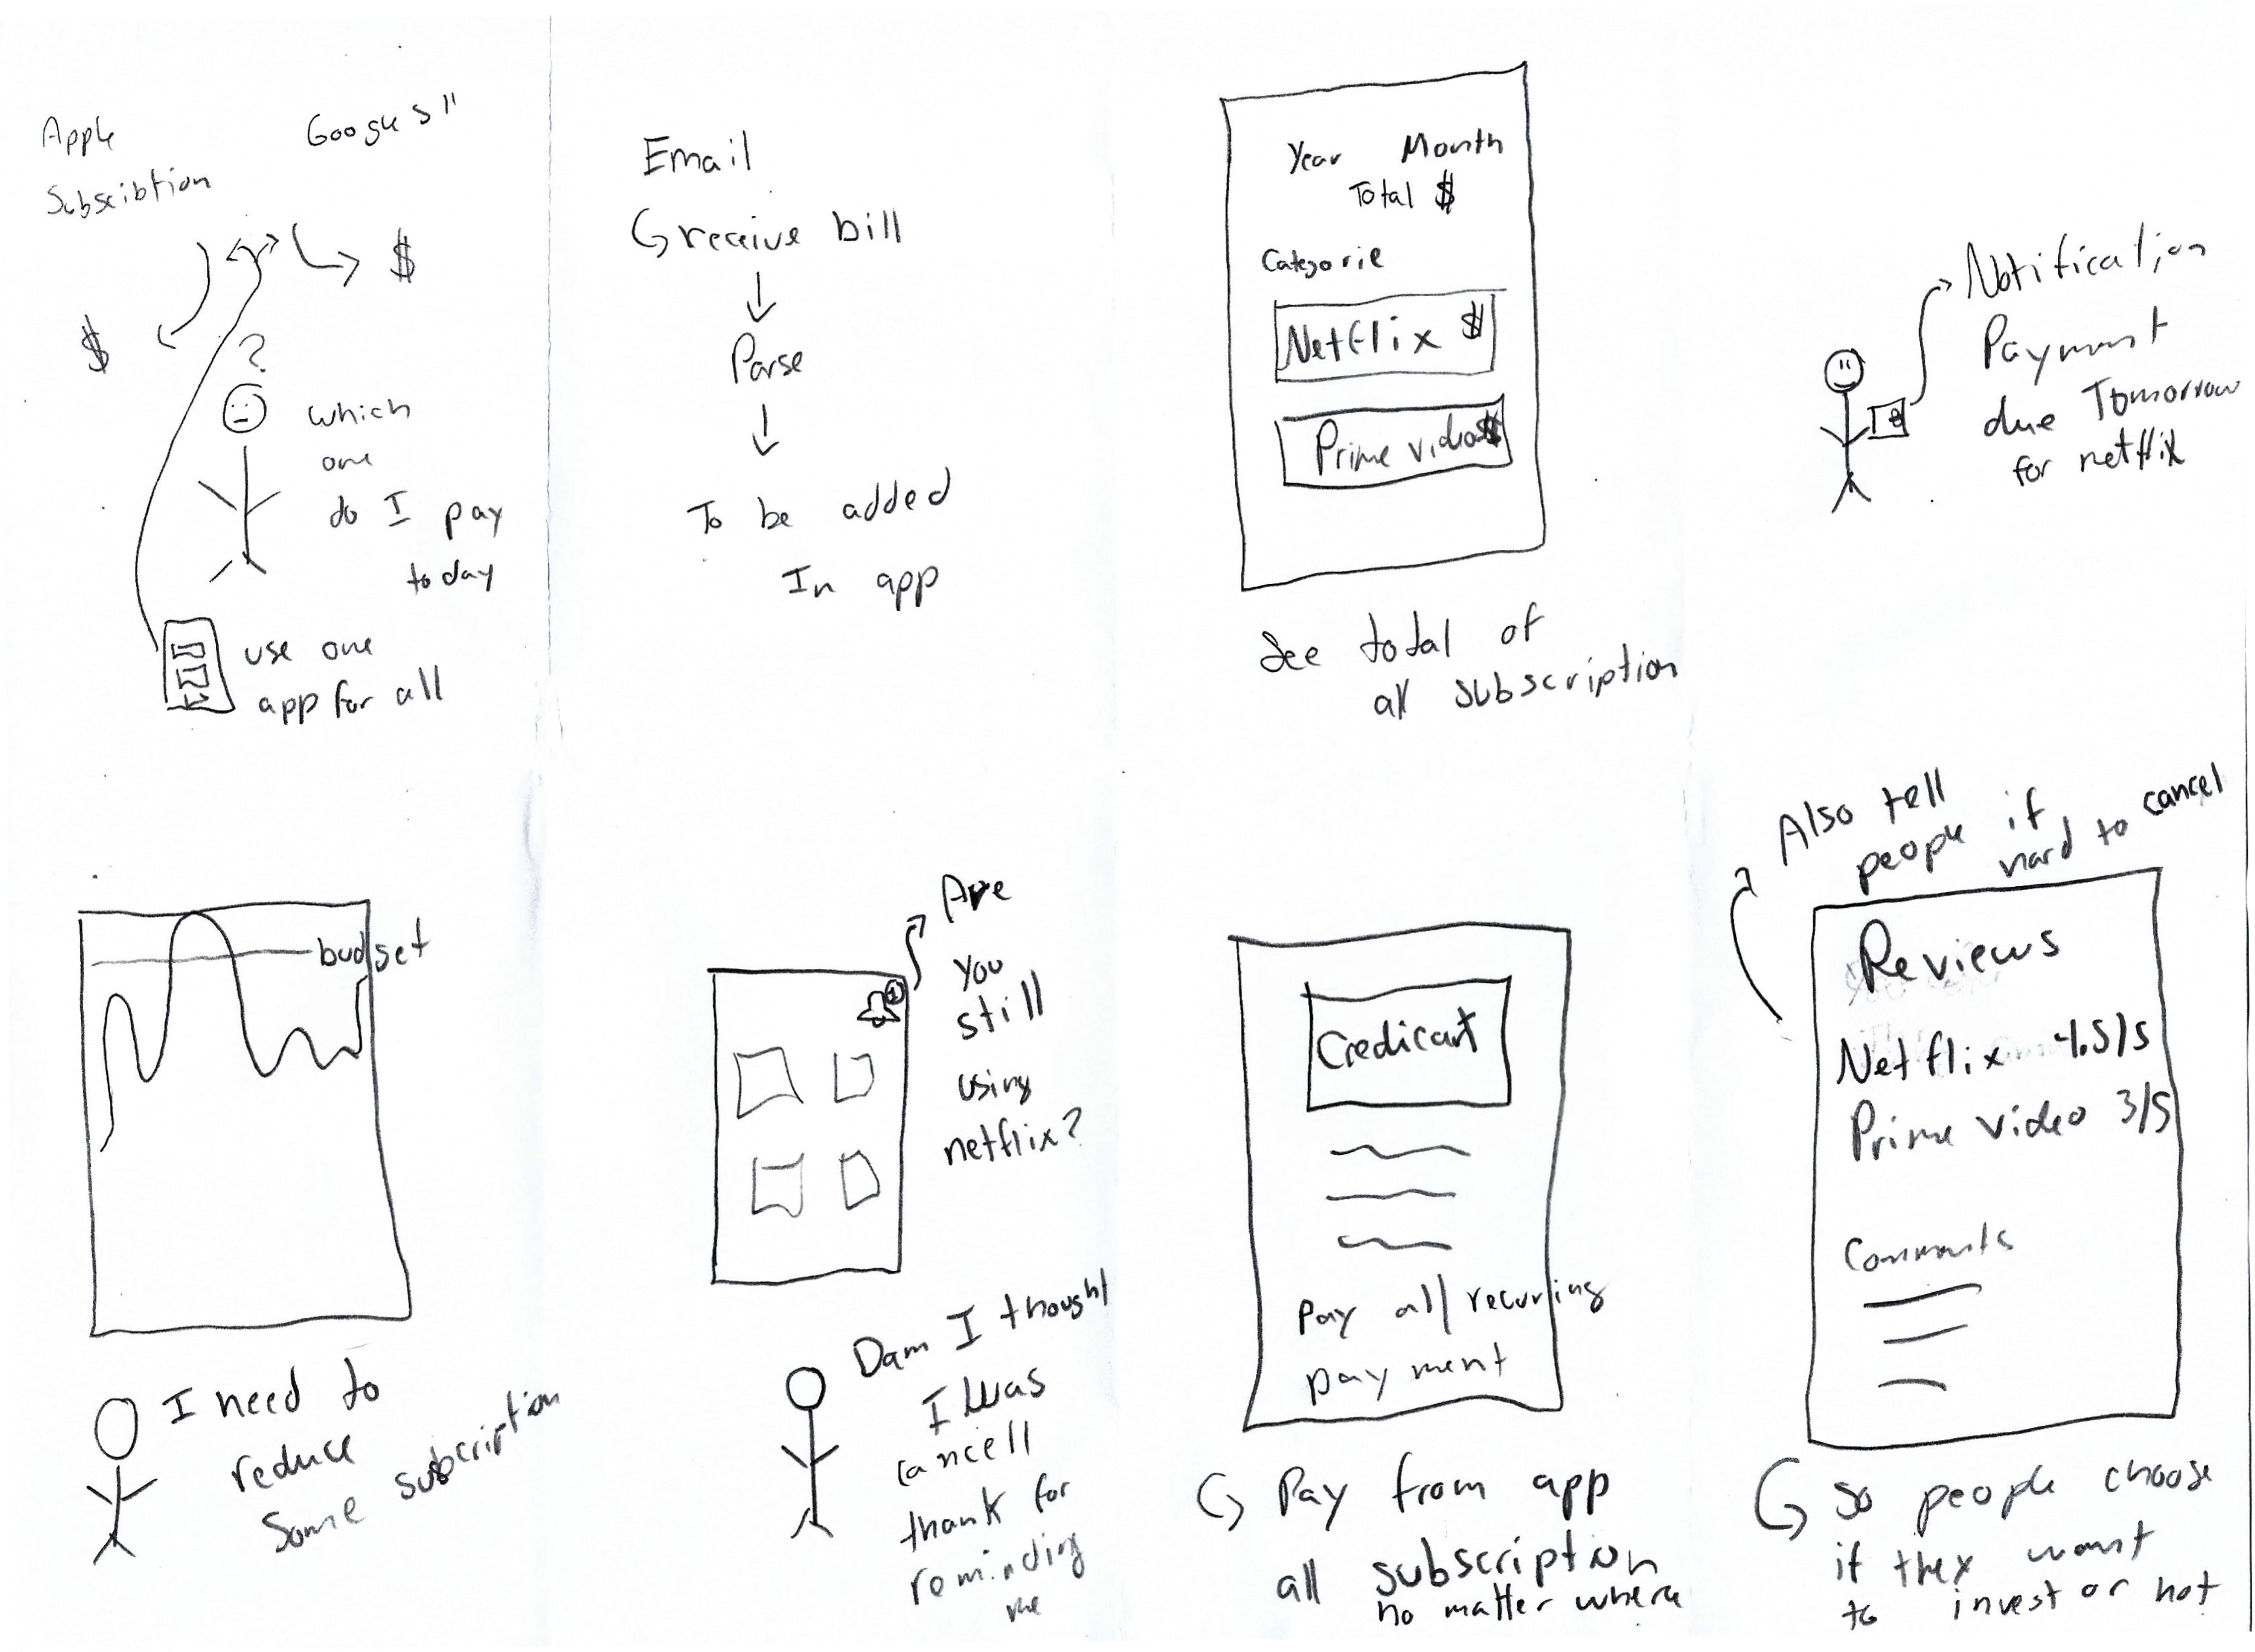 Apple
Subscibtion
Google s"
$
$
?
which
one
do I pay
today
use one
app for all
Email
receive bill
Parse
To be added
In app
Year Month
Total $
Categorie
Netflix $
Prime video $
See total of
all subscription
Notification
Payment
due Tomorrow
for netflix
budget
I need to
reduce
Some subscription
1
Are
you
still
using
netflix?
Dam I thought
I was
cancell
thank for
reminding
me
Credicart
Pay all recurring
payment
Pay from app
all subscription
no matter where
Also tell
people if
hard to cancel
Reviews
Netflix 4.5/5
Prime video 3/5
Comments
so people choose
if they want
to invest or not